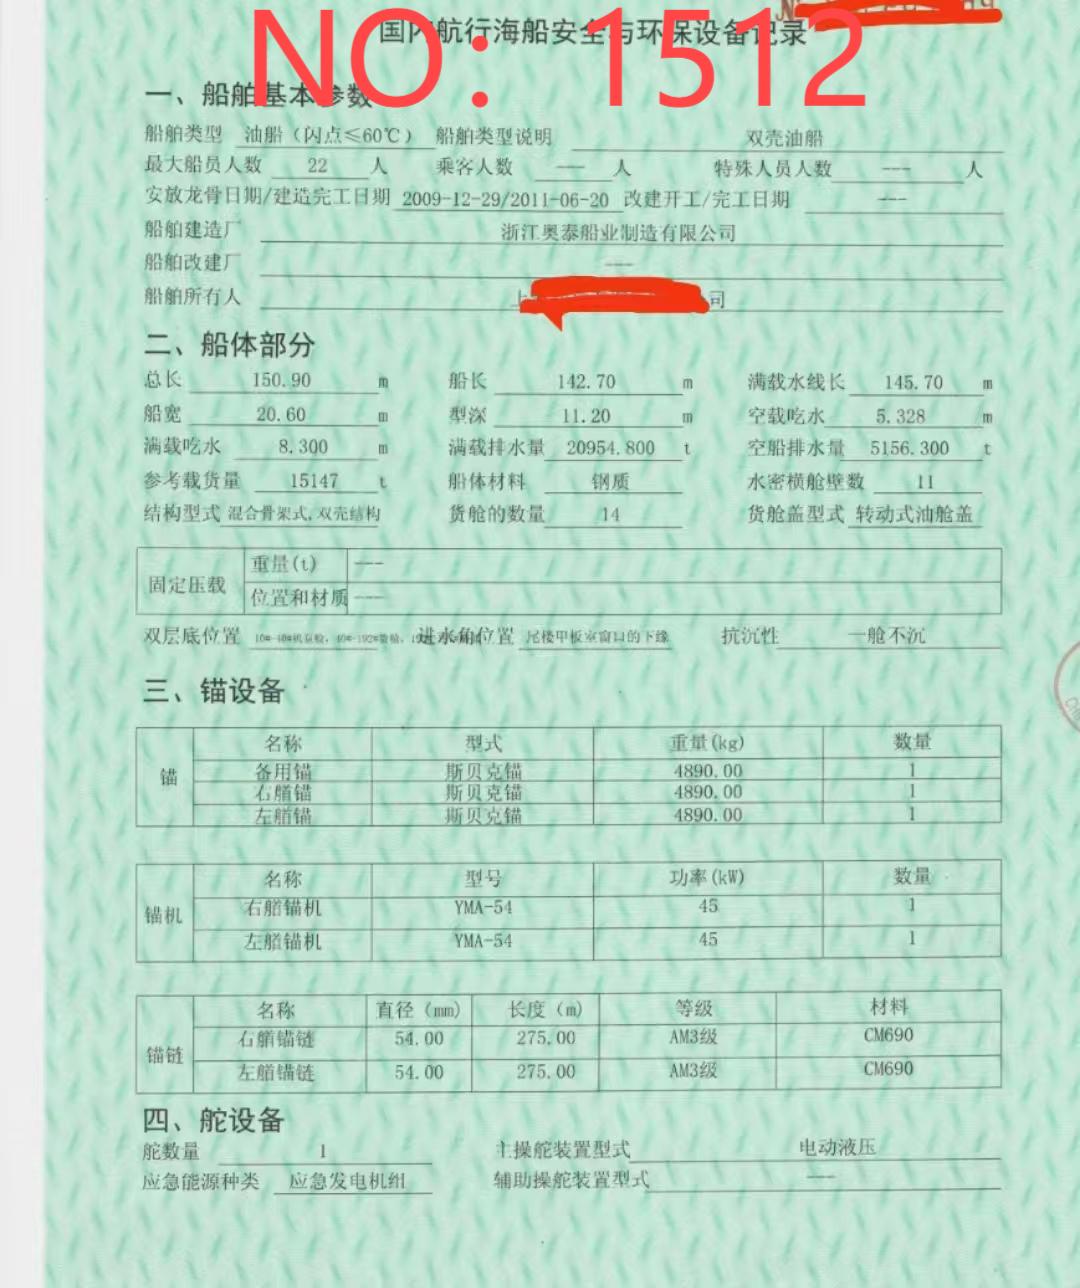 NO：1512
国内航行海船安全与环保设备记录
一、船舶基本参数
船舶类型 油船（闪点≤60℃） 船舶类型说明 双壳油船
最大船员人数 22 人 乘客人数 --- 人 特殊人员人数 --- 人
安放龙骨日期/建造完工日期 2009-12-29/2011-06-20 改建开工/完工日期 ---
船舶建造厂 浙江奥泰船业制造有限公司
船舶改建厂 ---
船舶所有人 上 司
二、船体部分
总长 150.90 m 船长 142.70 m 满载水线长 145.70 m
船宽 20.60 m 型深 11.20 m 空载吃水 5.328 m
满载吃水 8.300 m 满载排水量 20954.800 t 空船排水量 5156.300 t
参考载货量 15147 t 船体材料 钢质 水密横舱壁数 11
结构型式 混合骨架式,双壳结构 货舱的数量 14 货舱盖型式 转动式油舱盖
固定压载 重量(t) ---
位置和材质 ---
双层底位置 进水角位置 尾楼甲板室窗口的下缘 抗沉性 一舱不沉
三、锚设备
锚 名称 型式 重量(kg) 数量
备用锚 斯贝克锚 4890.00 1
右艏锚 斯贝克锚 4890.00 1
左艏锚 斯贝克锚 4890.00 1
锚机 名称 型号 功率(kW) 数量
右艏锚机 YMA-54 45 1
左艏锚机 YMA-54 45 1
锚链 名称 直径（mm） 长度（m） 等级 材料
右艏锚链 54.00 275.00 AM3级 CM690
左艏锚链 54.00 275.00 AM3级 CM690
四、舵设备
舵数量 1 主操舵装置型式 电动液压
应急能源种类 应急发电机组 辅助操舵装置型式 ---